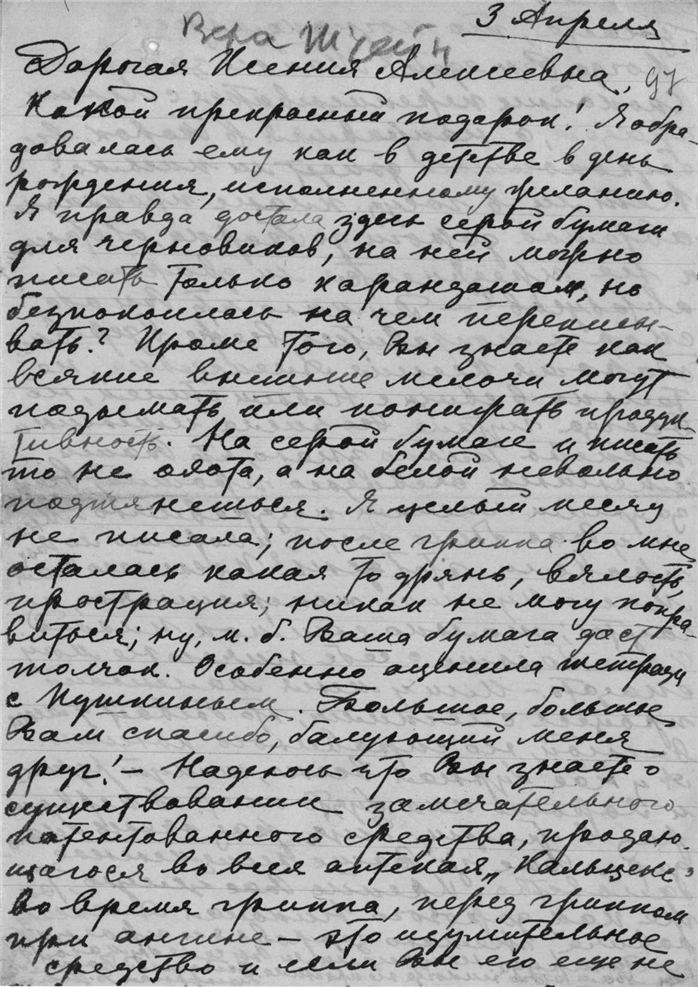 3 Апреля
Вера
97
Дорогая Ксения Алексеевна,
Какой прекрасный подарок! Я обра-
довалась ему как в детстве в день
рождения, исполненному желанию.
Я правда достала здесь серой бумаги
для черновиков, на ней можно
писать только карандашом, но
безпокоилась на чем переписы-
вать? Кроме того, Вы знаете как
всякие внешние мелочи могут
подымать или понижать продук-
тивность. На серой бумаге и писать
то не охота, а на белой невольно
подтянешься. Я целый месяц
не писала; после гриппа во мне
осталась какая то дрянь, вялость,
прострация; никак не могу попра-
виться; ну, м. б. Ваша бумага даст
толчок. Особенно оценила тетради
с Пушкиным. Большое, большое
Вам спасибо, балующий меня
друг! – Надеюсь что Вы знаете о
существовании замечательного
патентованного средства, продаю-
щагося во всех аптеках „Кальцекс"
во время гриппа, перед гриппом
при ангине – это изумительное
средство и если Вы его еще не